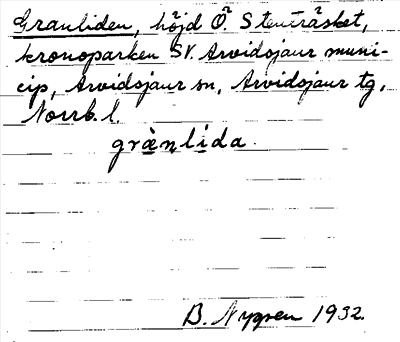 Granliden, höjd Ö. Stenträsket,
kronoparken SV. Arvidsjaur muni-
cip, Arvidsjaur sn, Arvidsjaur tg,
Norrb. l.
grànlída.
B. Nygren 1932.